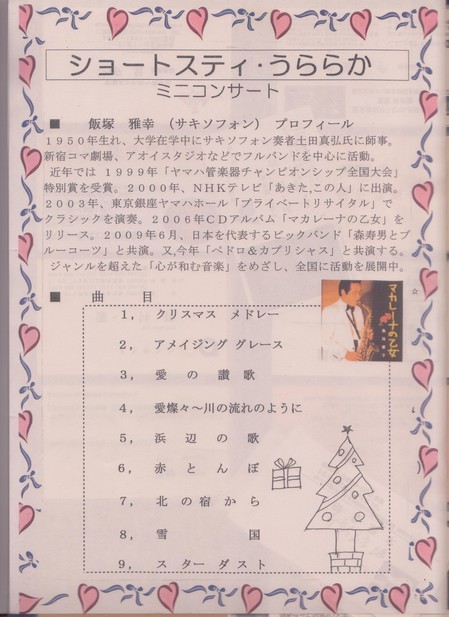 ショートスティ・うららか
ミニコンサート
■ 飯塚 雅幸 (サキソフォン) プロフィール
1950年生れ、大学在学中にサキソフォン奏者土田真弘氏に師事。
新宿コマ劇場、アオイスタジオなどでフルバンドを中心に活動。
近年では 1999年「ヤマハ管楽器チャンピオンシップ全国大会」
特別賞を受賞。2000年、NHKテレビ「あきた,この人」に出演。
2003年、東京銀座ヤマハホール「プライベートリサイタル」で
クラシックを演奏。2006年CDアルバム「マカレーナの乙女」を
リリース。2009年6月、日本を代表するビックバンド「森寿男とブ
ルーコーツ」と共演。又,今年「ペドロ&カプリシャス」と共演する。
ジャンルを超えた「心が和む音楽」をめざし、全国に活動を展開中。
■ 曲 目
1, クリスマス メドレー
2, アメイジング グレース
3, 愛の讃歌
4, 愛燦々~川の流れのように
5, 浜辺の歌
6, 赤とんぼ
7, 北の宿から
8, 雪 国
9, スターダスト
マカレーナの乙女